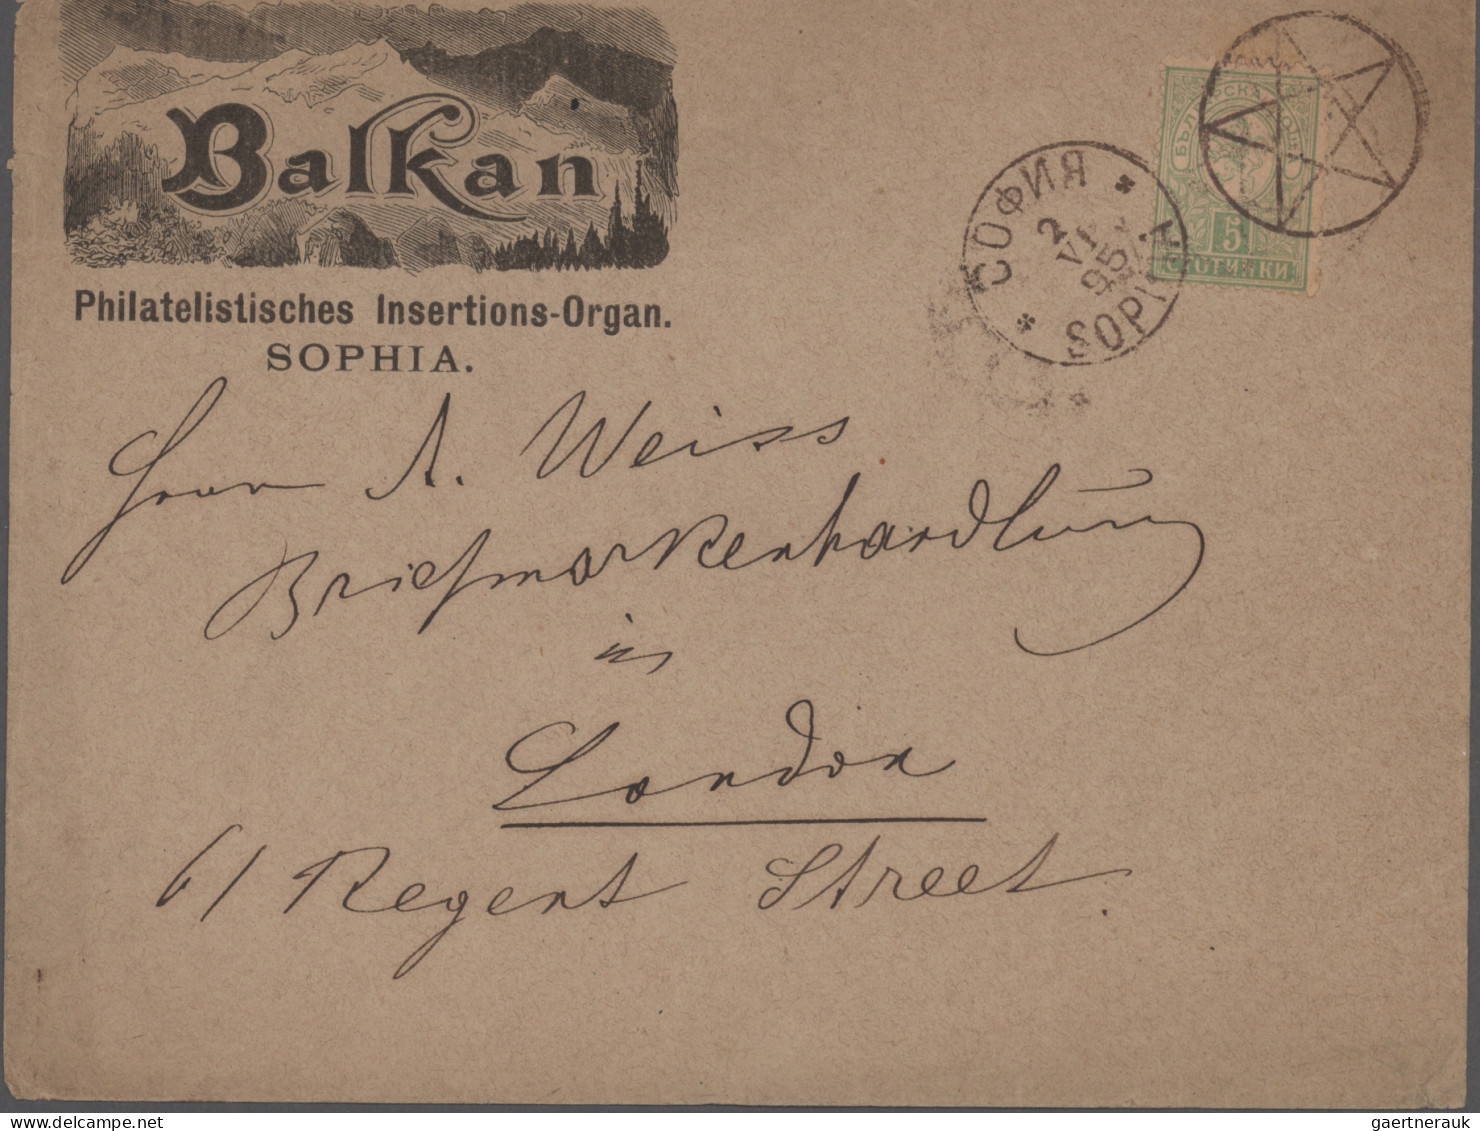 Balkan
Philatelistisches Insertions-Organ.
SOPHIA.
СОФИЯ
2
VI
95
SOPHIA
5
СТОТИНКИ
Herrn A. Weiss
Briefmarkenhandlung
in
London
61 Regent Street.
gaertnerauk